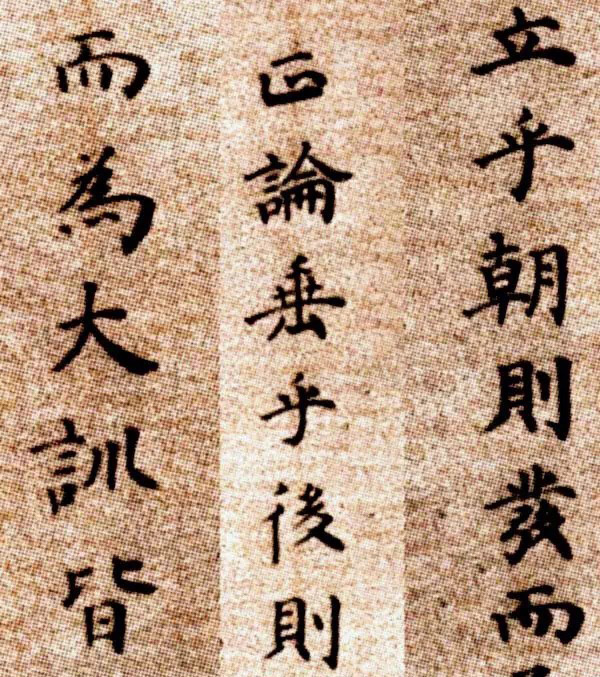 立乎朝則發而
正論垂乎後則
而為大訓皆